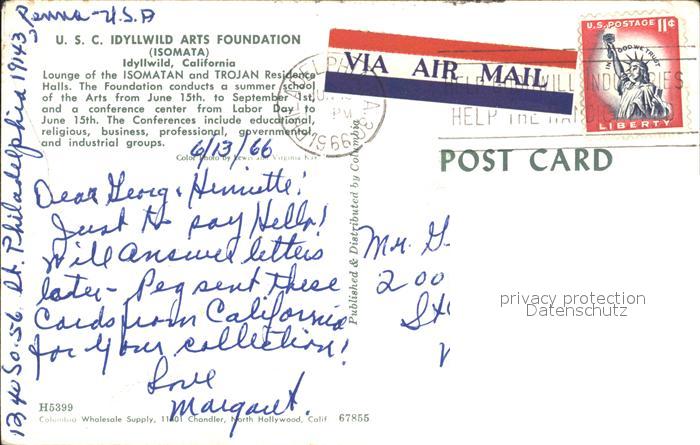 Penna-U.S.A
1340 So. 56 St. Philadelphia 19143
U. S. C. IDYLLWILD ARTS FOUNDATION
(ISOMATA)
Idyllwild, California
Lounge of the ISOMATAN and TROJAN Residence
Halls. The Foundation conducts a summer school
of the Arts from June 15th. to September 1st,
and a conference center from Labor Day to
June 15th. The Conferences include educational,
religious, business, professional, governmental
and industrial groups.
Color Photo by Lewis and Virginia Kay
6/13/66
Dear Georg & Henriette!
Just to say Hello!
Will answer letters
later - Peg sent these
Cards from California
for your collection!
Love
Margaret.
H5399
Columbia Wholesale Supply, 11401 Chandler, North Hollywood, Calif 67855
Published & Distributed by Columbia
VIA AIR MAIL
PM
1966
U.S. POSTAGE 11¢
IN GOD WE TRUST
LIBERTY
HELP GOODWILL INDUSTRIES
HELP THE HANDICAPPED
POST CARD
Mr. G
200
St
privacy protection
Datenschutz